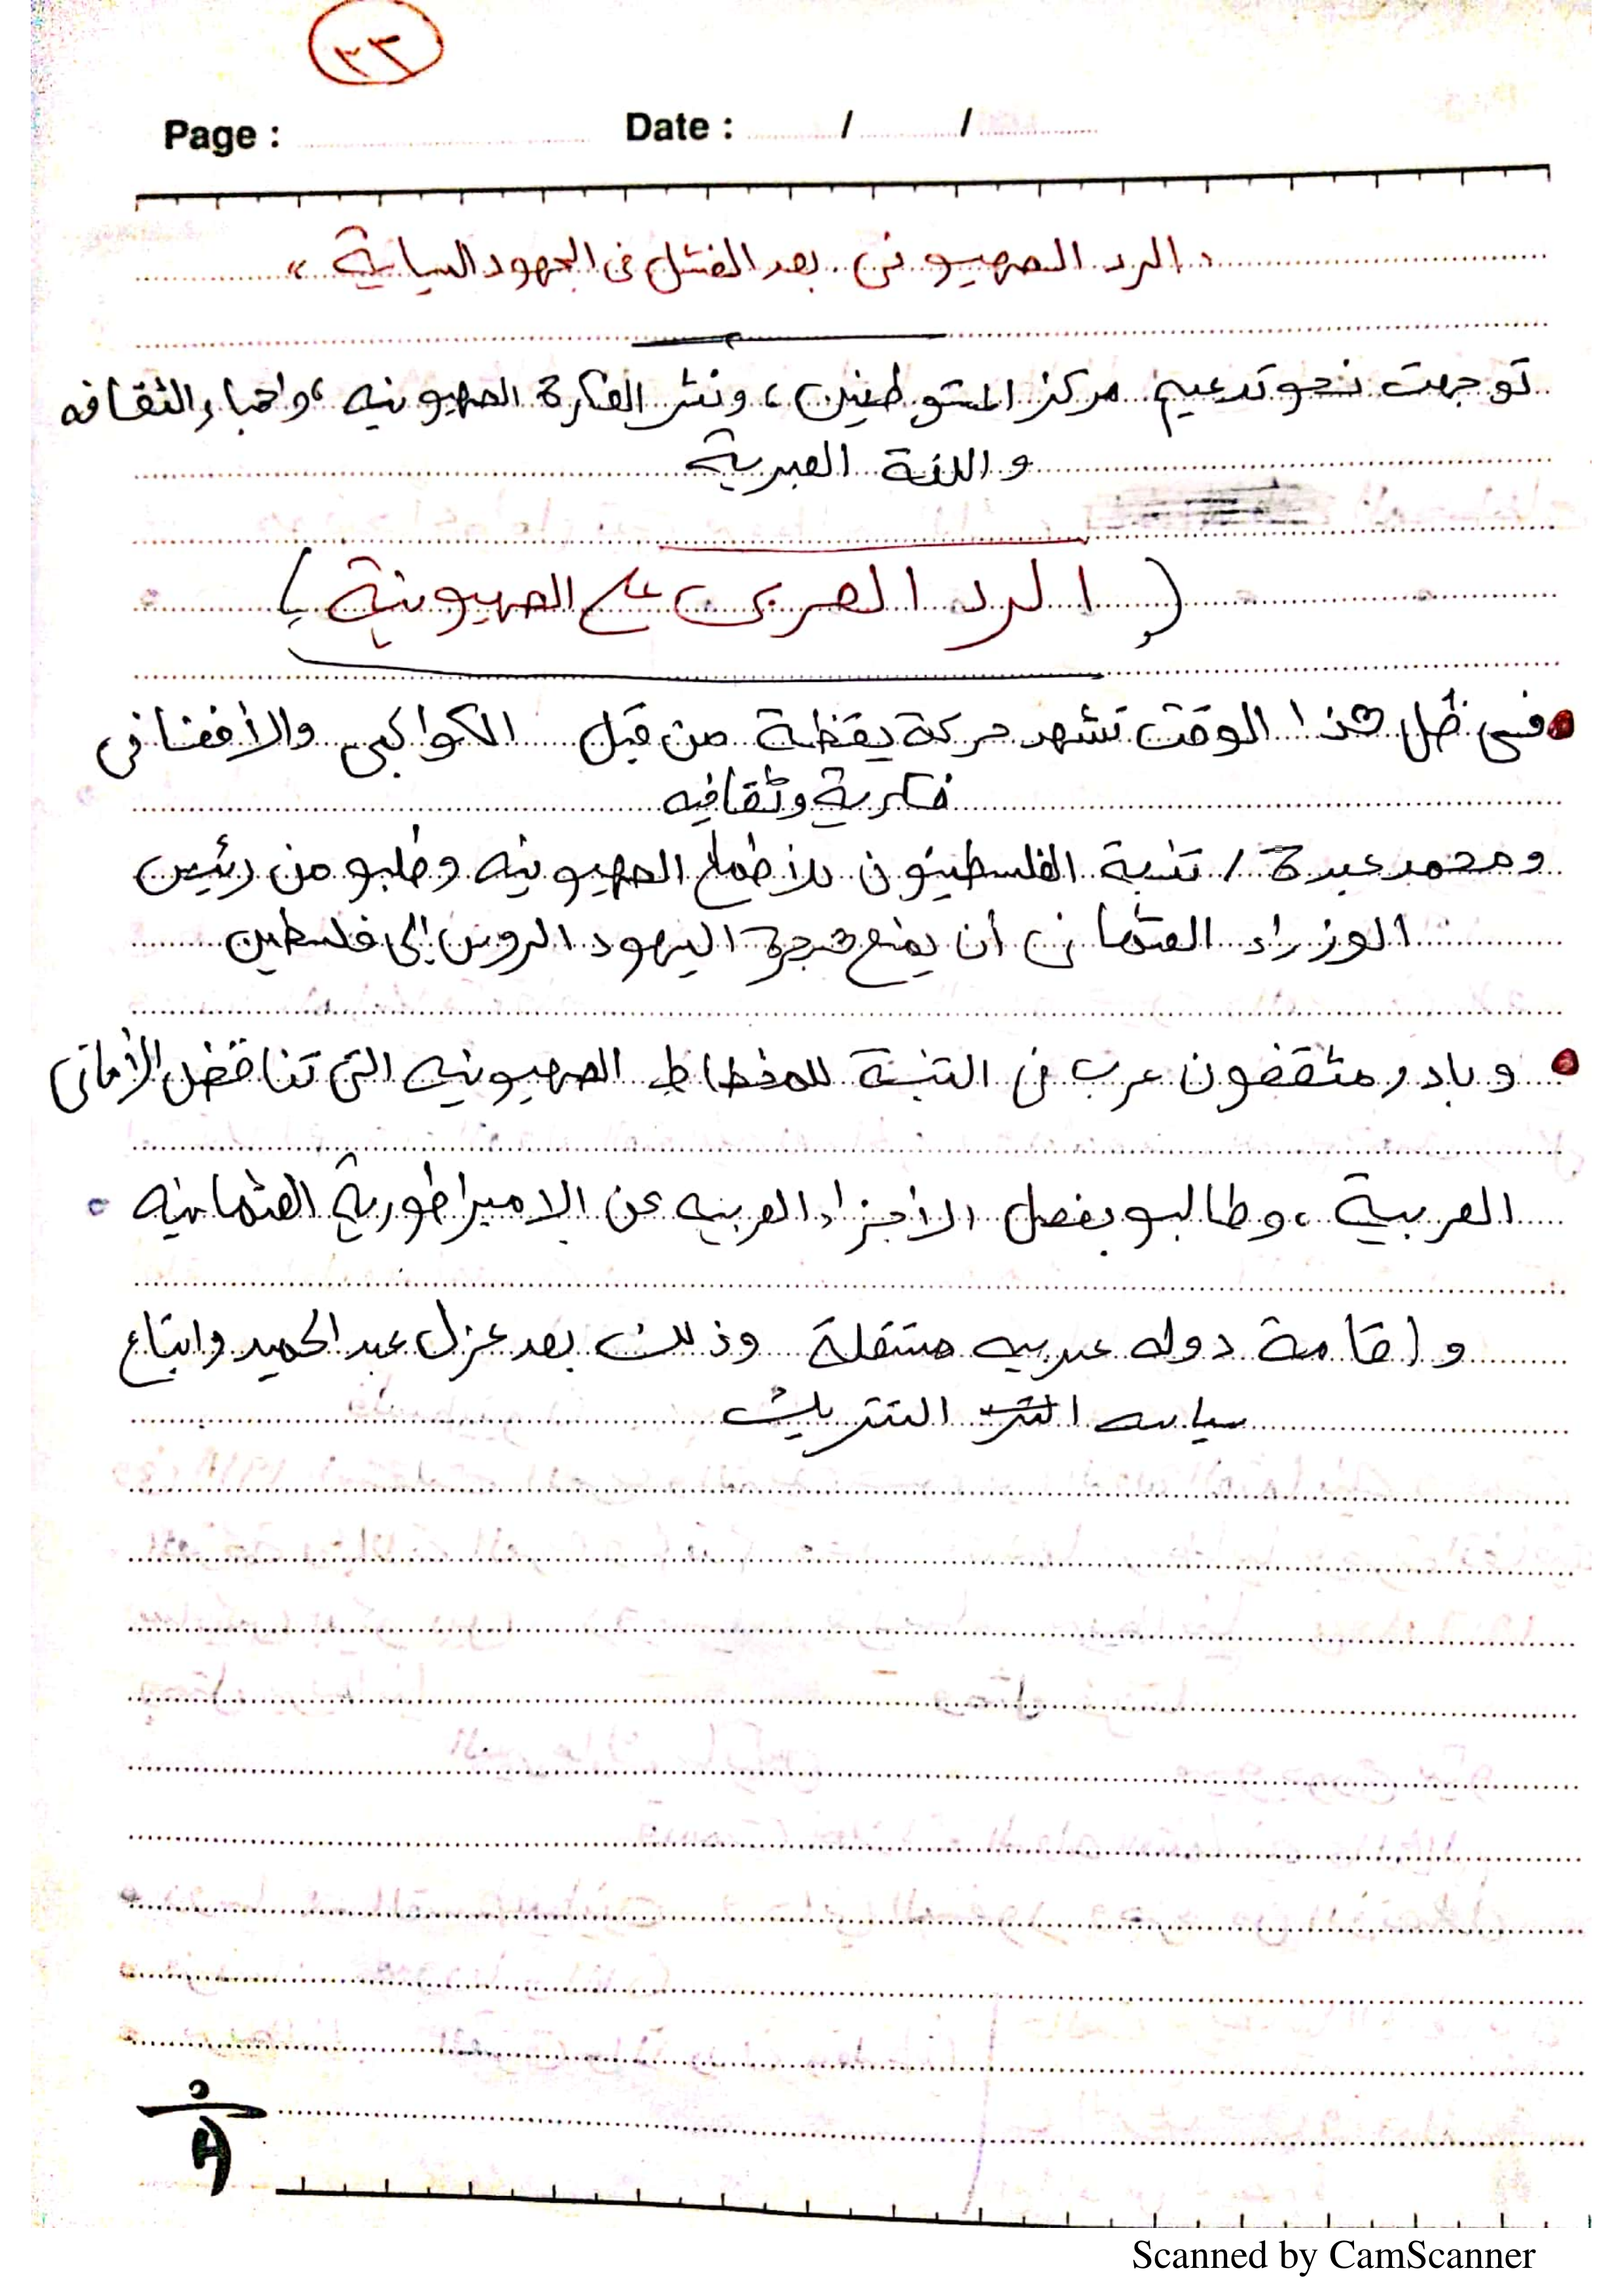 ٢٣
Page : Date : / /
" الرد الصهيونى بعد الفشل فى الجهود السياسية "
توجهت نحو تدعيم مركز المستوطنين، ونشر الفكرة الصهيونيه، واحياء الثقافه
واللغة العبرية
( الرد العربى على الصهيونية )
• فى ظل هذا الوقت تشهد حركة يقظة من قبل الكواكبى والأفغانى
فكرية وثقافيه
ومحمد عبدة / تنبة الفلسطينون للأطماع الصهيونيه وطلبو من رئيس
الوزراء العثمانى أن يمنع هجرة اليهود الروس إلى فلسطين
• وبادر مثقفون عرب فى التنبة للمخطاط الصهيونيه التى تناقض الأمانى
العربية، وطالبو بفصل الأجزاء العربيه عن الإمبراطورية العثمانيه .
وإقامة دوله عربيه مستقلة وذلك بعد عزل عبد الحميد واتباع
سياسه التتريك
Scanned by CamScanner